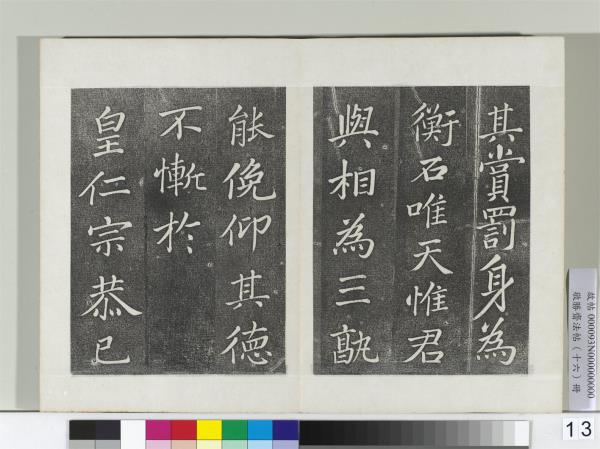 其賞罰身為
衡石唯天惟君
與相為三孰
能俛仰其德
不慚於
皇仁宗恭已
故帖 000093N000000000
敬勝齋法帖（十六）冊
13